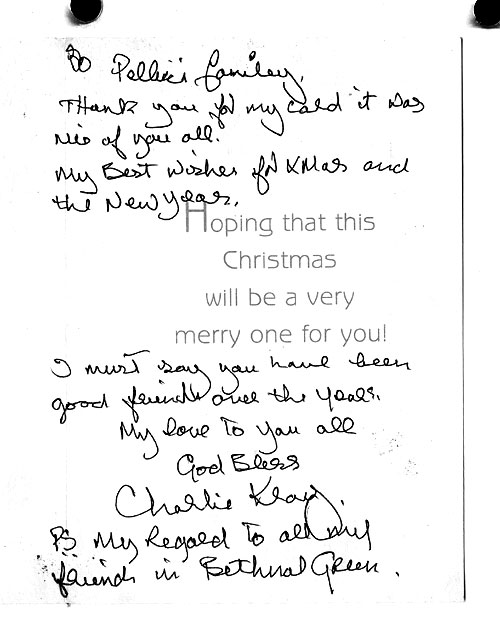 To Pellicci family,
Thank you for my card it was
nic of you all.
My Best wishes for XMas and
the New Year.
Hoping that this
Christmas
will be a very
merry one for you!
I must say you have been
good friends over the years.
My love To you all
God Bless
Charlie Kray.
PS My Regard To all my
friends in Bethnal Green.